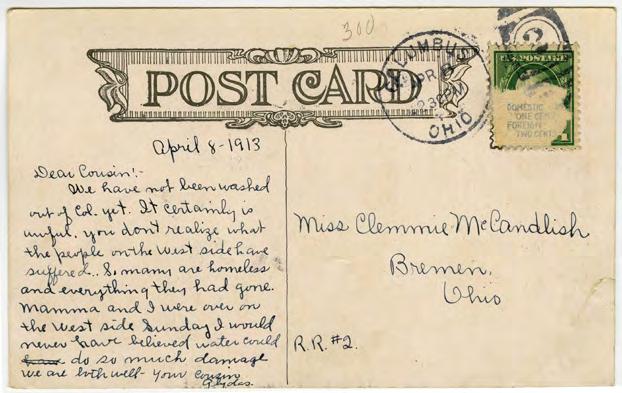 300
POST CARD
COLUMBUS
APR
230PM
OHIO
U.S. POSTAGE
DOMESTIC
ONE CENT
FOREIGN
TWO CENTS
1
2
April 8-1913
Dear Cousin!-
We have not been washed
out of Col. yet. It certainly is
awful. you don't realize what
the people on the West side have
suffered.. So many are homeless
and everything they had gone.
Mamma and I were over on
the West side Sunday I would
never have believed water could
do so much damage
we are both well - your cousin
Miss Clemmie McCandlish
Bremen,
Ohio
R.R. #2.